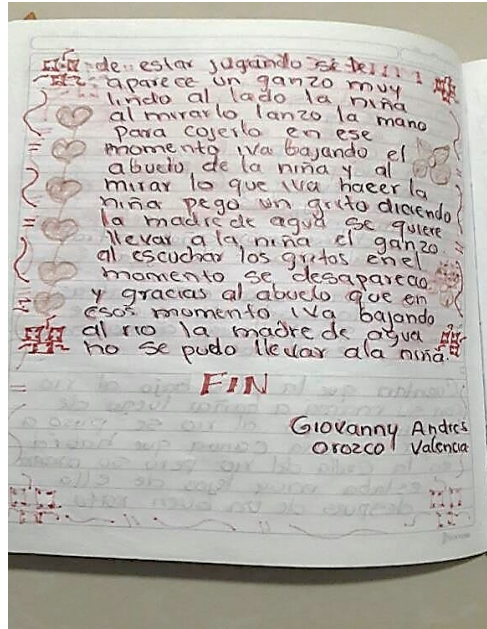 de estar jugando se le
aparece un ganzo muy
lindo al lado la niña
al mirarlo lanzo la mano
para cojerlo en ese
momento iva bajando el
abuelo de la niña y al
mirar lo que iva hacer la
niña pego un grito diciendo
la madre de agua se quiere
llevar a la niña el ganzo
al escuchar los gritos en el
momento se desaparecio
y gracias al abuelo que en
esos momento iva bajando
al rio la madre de agua
no se pudo llevar ala niña.
FIN
Giovanny Andres
Orozco Valencia